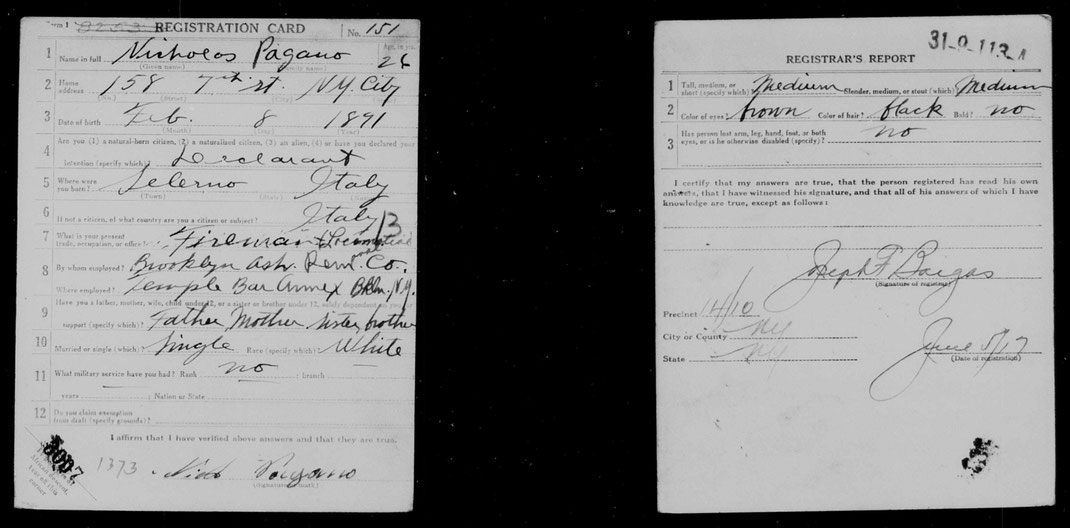 Form 1 REGISTRATION CARD No. 151
1 Name in full Nicholas Pagano Age, in yrs. 26
(Given name) (Family name)
2 Home address 158 7th St. N.Y. City
(No.) (Street) (City) (State)
3 Date of birth Feb. 8 1891
(Month) (Day) (Year)
4 Are you (1) a natural-born citizen, (2) a naturalized citizen, (3) an alien, (4) or have you declared your
intention (specify which)? Declarant
5 Where were you born? Selerno Italy
(Town) (State)
6 If not a citizen, of what country are you a citizen or subject? Italy 13
7 What is your present trade, occupation, or office? Fireman
8 By whom employed? Brooklyn Ash. Rem. Co.
Where employed? Temple Bar Annex Bkln. N.Y.
9 Have you a father, mother, wife, child under 12, or a sister or brother under 12, solely dependent on you for
support (specify which)? Father Mother sister brother
10 Married or single (which)? Single Race (specify which)? White
11 What military service have you had? Rank no branch
years ; Nation or State
12 Do you claim exemption from draft (specify grounds)?
I affirm that I have verified above answers and that they are true.
1373 Nick Pagano
(Signature or mark)
31-9-113 A
REGISTRAR'S REPORT
1 Tall, medium, or short (specify which)? Medium Slender, medium, or stout (which)? Medium
2 Color of eyes? brown Color of hair? black Bald? no
3 Has person lost arm, leg, hand, foot, or both eyes, or is he otherwise disabled (specify)? no
I certify that my answers are true, that the person registered has read his own
answers, that I have witnessed his signature, and that all of his answers of which I have
knowledge are true, except as follows:
Joseph F.
(Signature of registrar)
Precinct 14/10
City or County NY
State NY
June 5/17
(Date of registration)